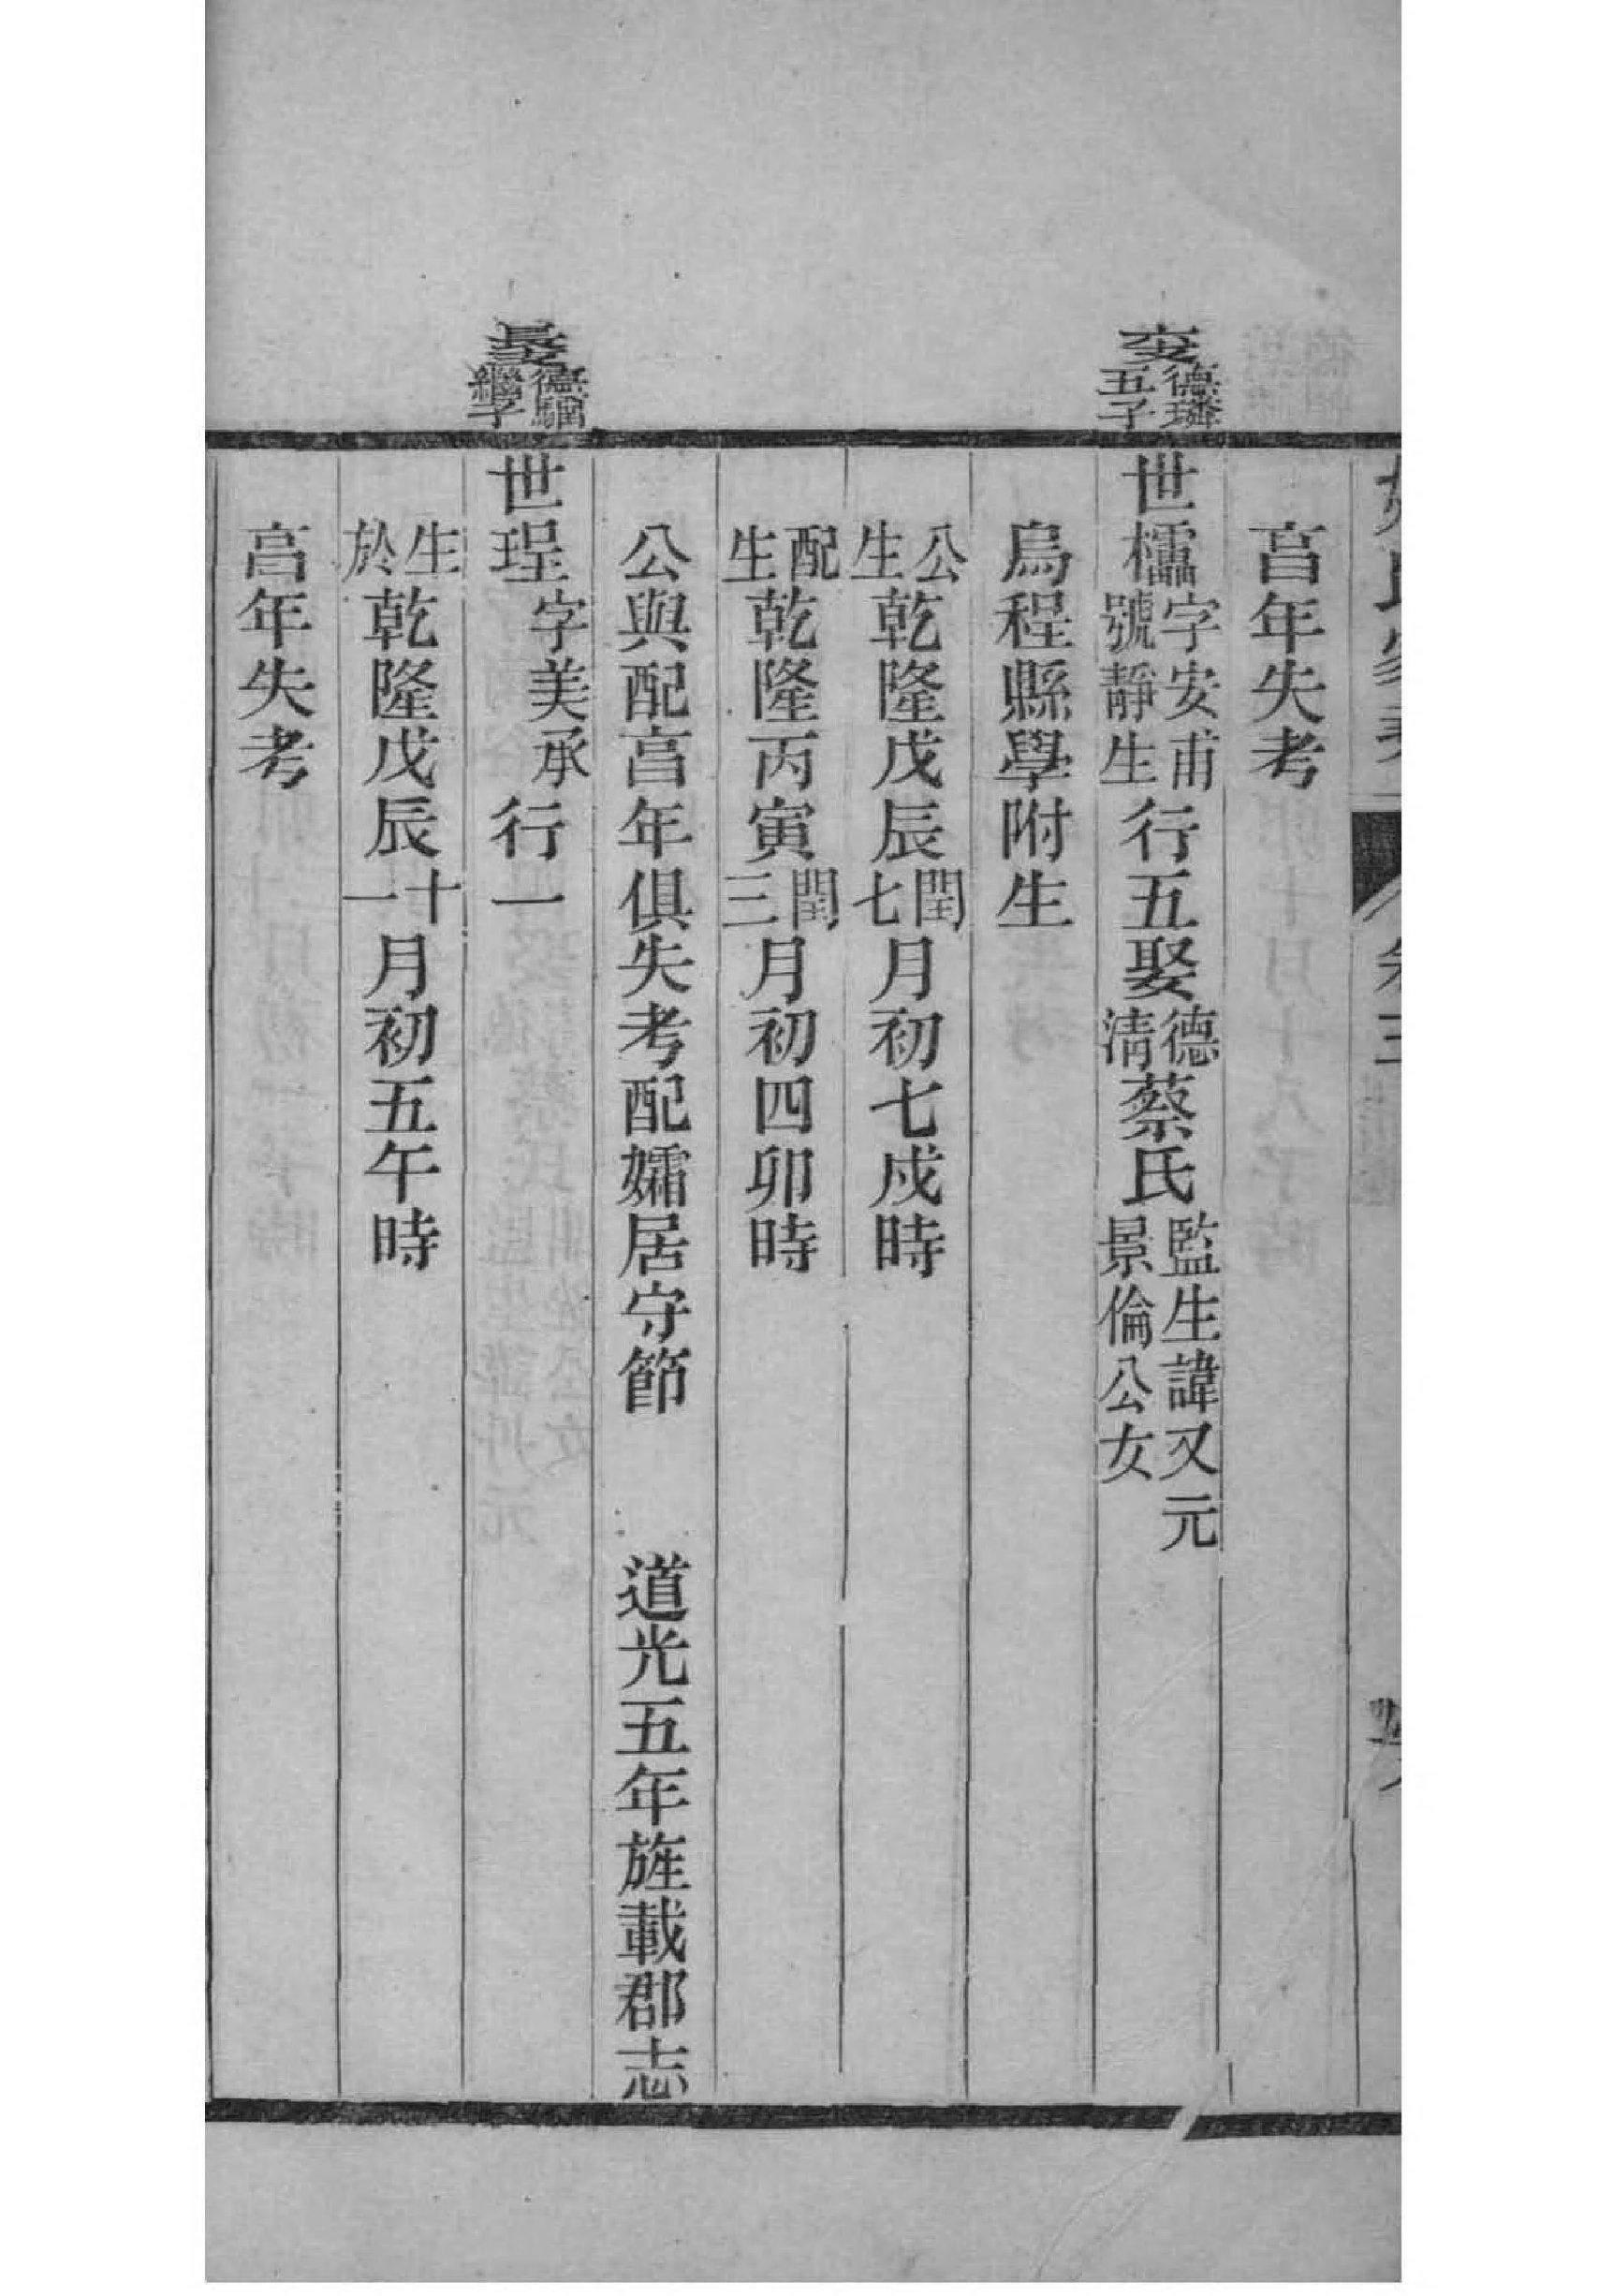 亯年失考
支德璘五子
世字安甫號靜生行五娶德清蔡氏監生諱又元景倫公女
烏程縣學附生
公生乾隆戊辰閏七月初七戌時
配生乾隆丙寅閏三月初四卯時
公與配亯年俱失考配孀居守節　道光五年旌載郡志
長支德騆繼子
世珵字美承行一
生於乾隆戊辰十一月初五午時
亯年失考